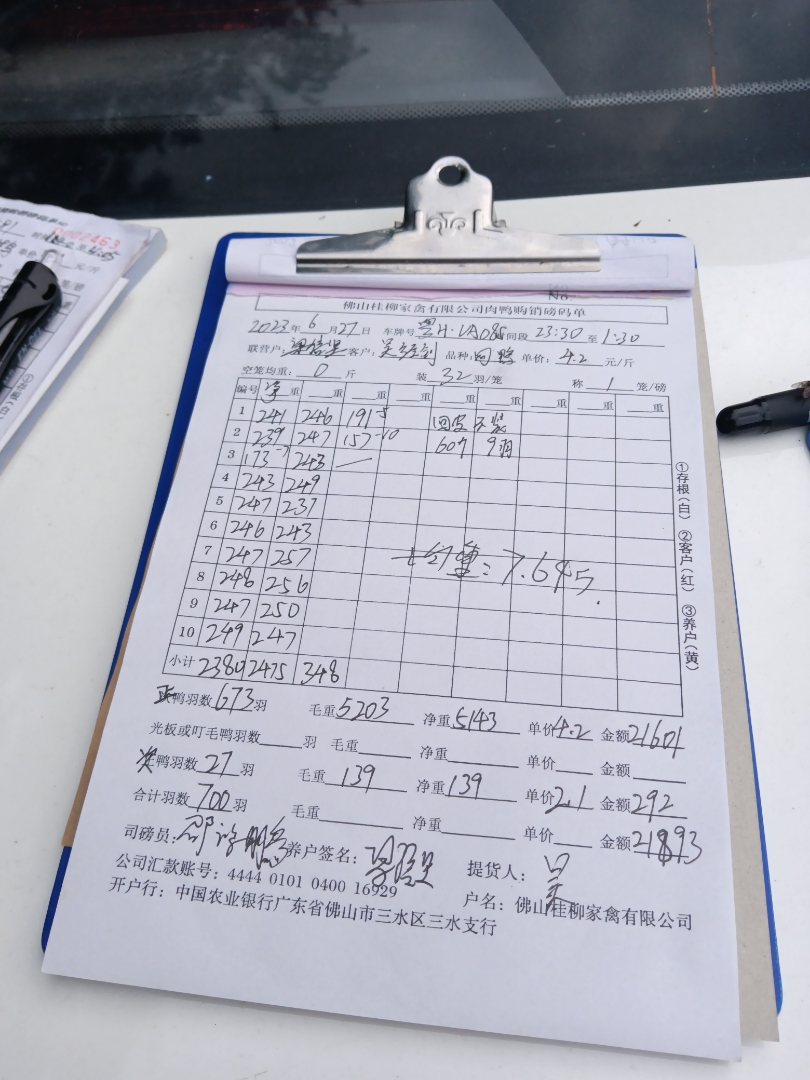 佛山桂柳家禽有限公司肉鸭购销磅码单
2023年 6 月 27 日 车牌号 粤H·VA085 时间段 23:30 至 1:30
联营户: 客户: 品种: 单价: 4.2 元/斤
空笼均重: 0 斤 装 32 羽/笼 称 1 笼/磅
编号 净重 重 重 重 重 重 重 重 重
1 241 246 191-5 回收 不装
2 239 247 157-10 60斤 9羽
3 173-7 243 —
4 243 249
5 247 237
6 246 243
7 247 257
8 248 256
9 247 250
10 249 247
均重: 7.645.
小计 2380 2475 348
正鸭羽数 673 羽 毛重 5203 净重 5143 单价 4.2 金额 21601
光板或叮毛鸭羽数 羽 毛重 净重 单价 金额
次鸭羽数 27 羽 毛重 139 净重 139 单价 2.1 金额 292
合计羽数 700 羽 毛重 净重 单价 金额 21893
司磅员: 养户签名: 提货人: 吴
公司汇款账号: 4444 0101 0400 16929 户名: 佛山桂柳家禽有限公司
开户行: 中国农业银行广东省佛山市三水区三水支行
①存根(白) ②客户(红) ③养户(黄)
No.
0002463
元/斤